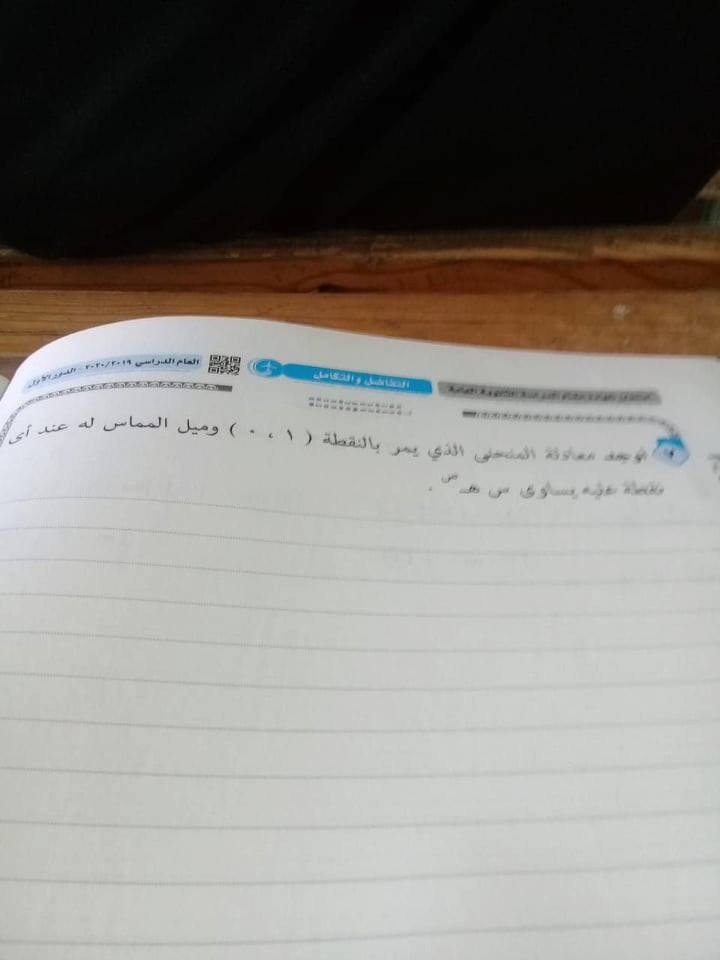 امتحان شهادة إتمام الدراسة الثانوية العامة
التفاضل والتكامل
العام الدراسي ٢٠٢٠/٢٠١٩ - الدور الأول
أوجد معادلة المنحنى الذي يمر بالنقطة ( ١ ، ٠ ) وميل المماس له عند أى
نقطة عليه يساوى س هـ س .